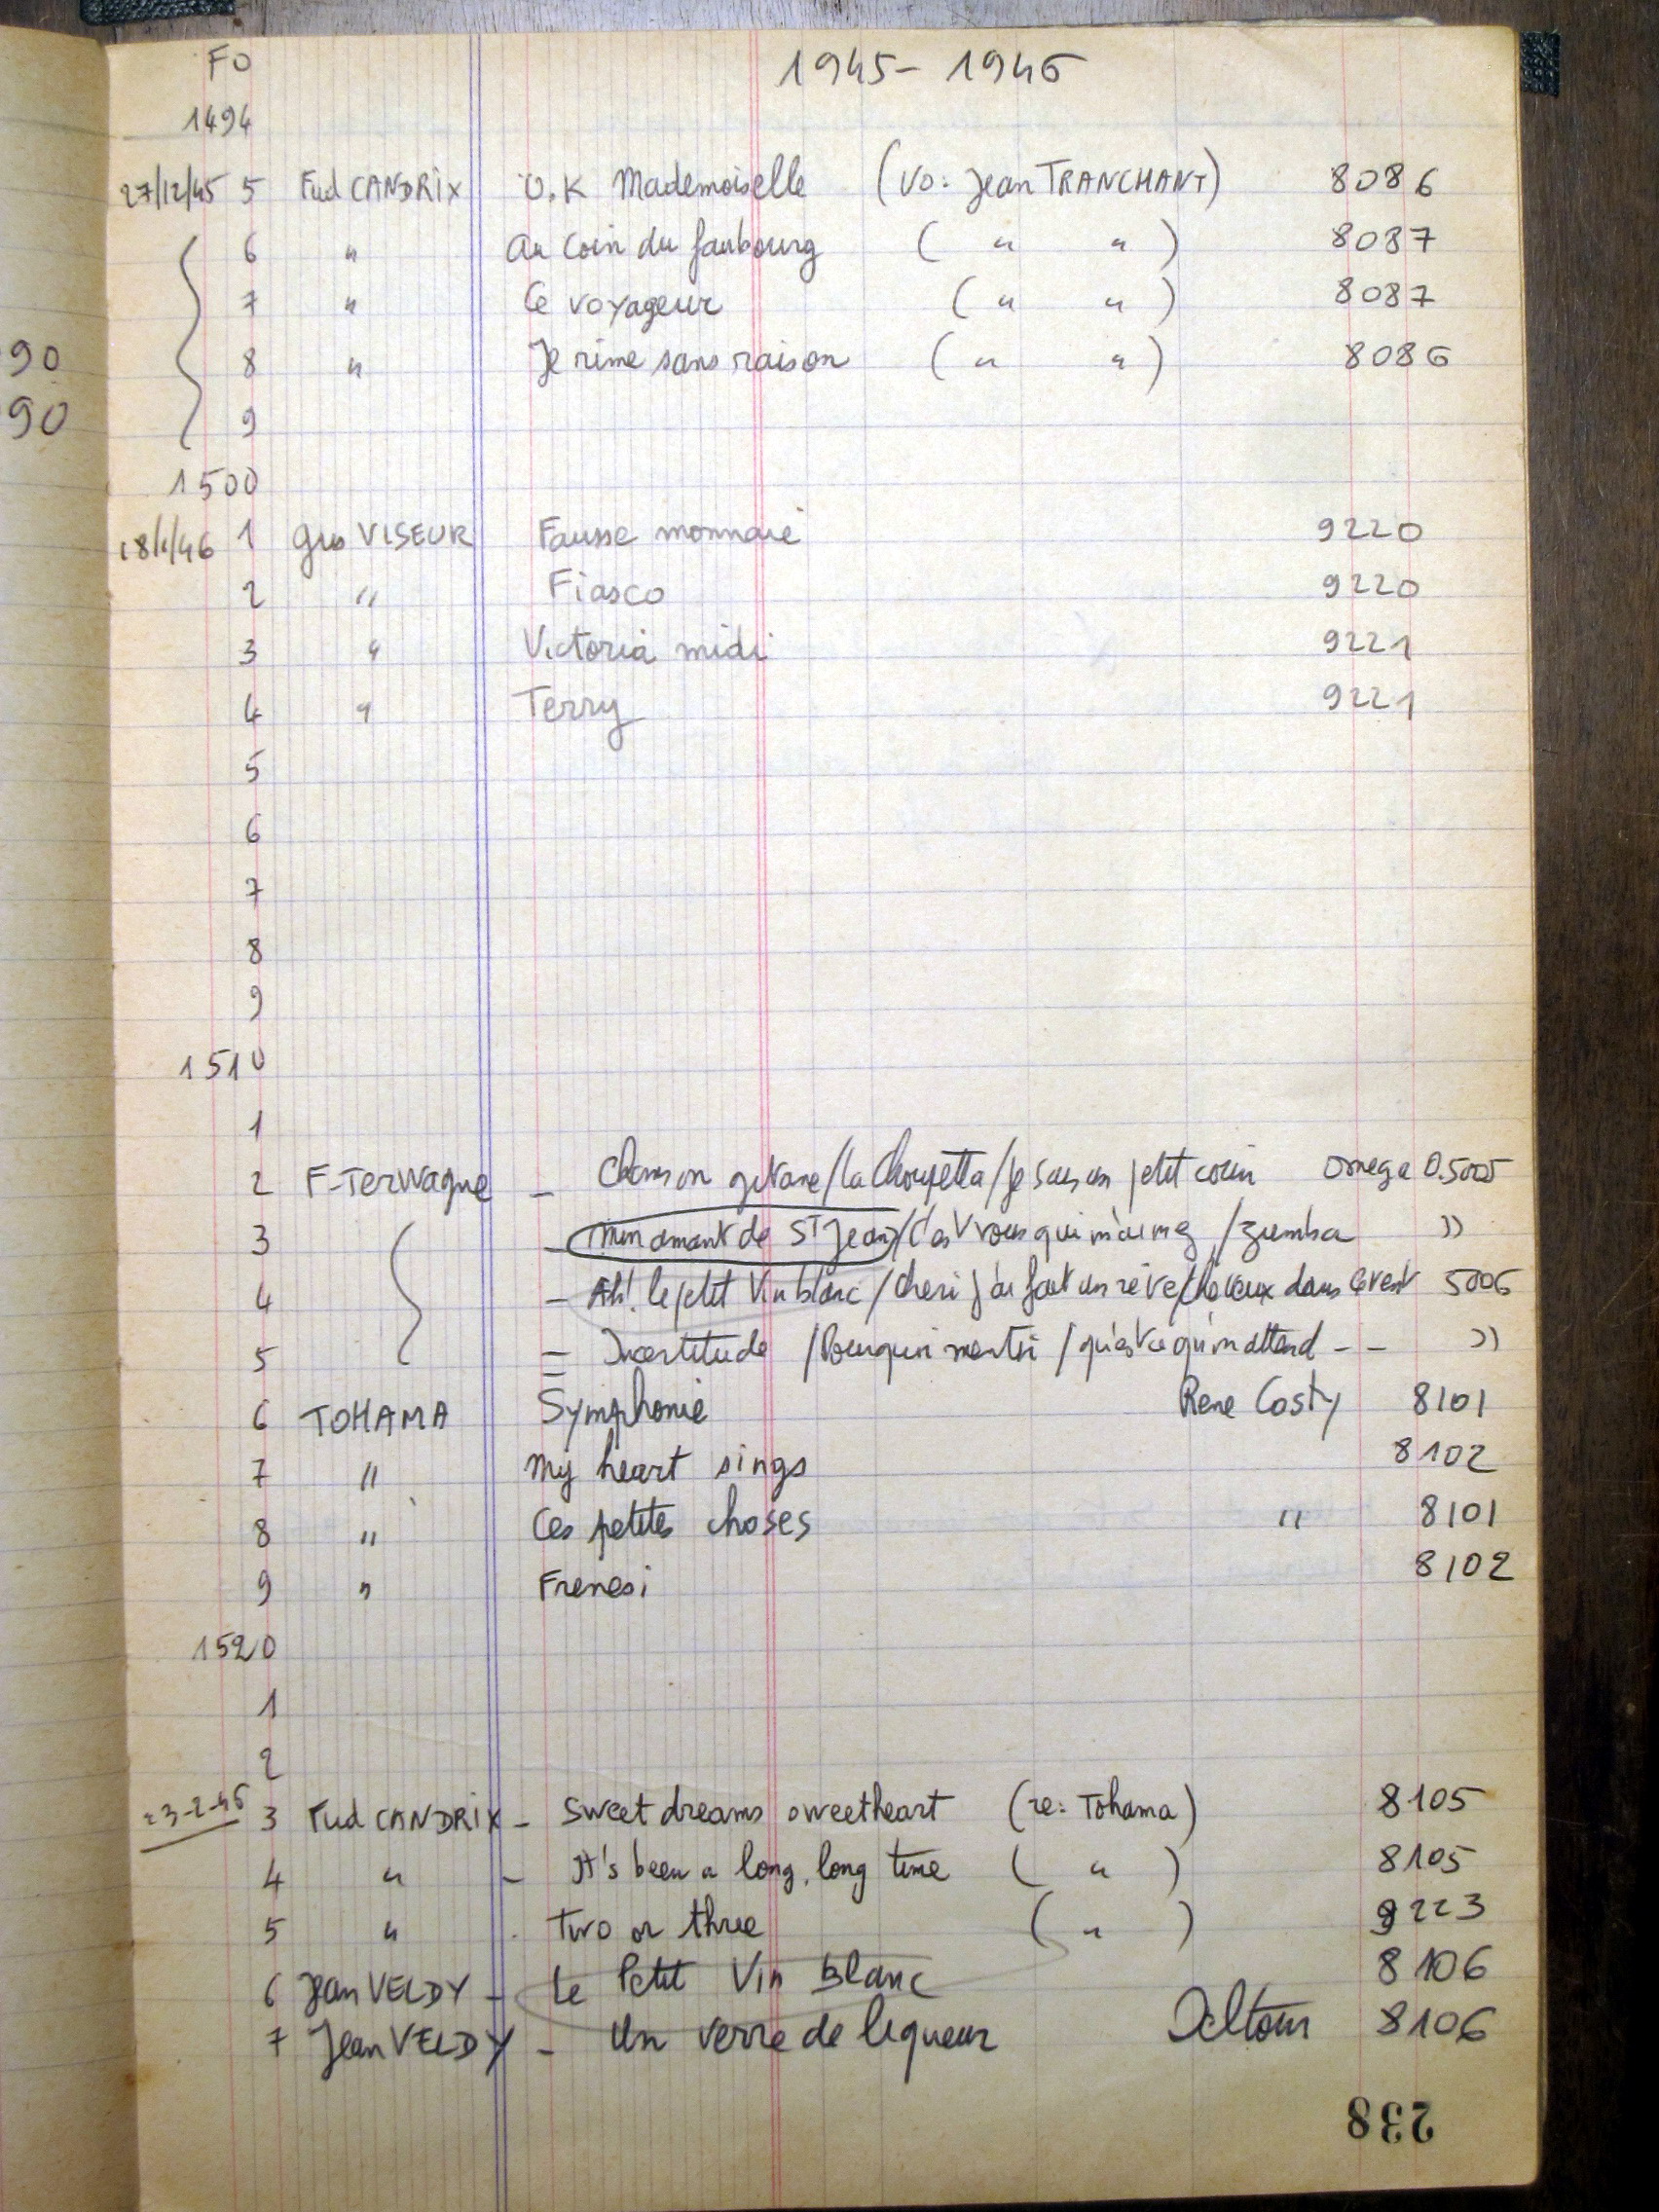 FO 1945-1946
1494
27/12/45 5 Fud CANDRIX O.K Mademoiselle (VO: Jean TRANCHANT) 8086
6 " Au coin du faubourg ( " " ) 8087
7 " Le voyageur ( " " ) 8087
90 8 " Je rime sans raison ( " " ) 8086
90 9
1500
18/1/46 1 Gus VISEUR Fausse monnaie 9220
2 " Fiasco 9220
3 " Victoria midi 9221
4 " Terry 9221
5
6
7
8
9
1510
1
2 F-TerWagne - Chanson gitane/la Choupetta/Je sais un petit coin Omega O.5005
3 - mon amant de St Jean/C'est vous qui m'aimez/zumba "
4 - Ah! le petit Vin blanc/Cheri j'ai fait un rêve/cheveux dans le vent 5006
5 - Incertitude/Pourquoi mentir/qu'est ce qu'on attend -- "
6 TOHAMA Symphonie Rene Costy 8101
7 " My heart sings 8102
8 " Ces petites choses " 8101
9 " Frenesi 8102
1520
1
2
23-2-46 3 Fud CANDRIX - Sweet dreams sweetheart (re: Tohama) 8105
4 " - It's been a long, long time ( " ) 8105
5 " - Two or three ( " ) 9223
6 Jean VELDY - Le Petit Vin Blanc 8106
7 Jean VELDY - Un verre de liqueur Deltour 8106
238